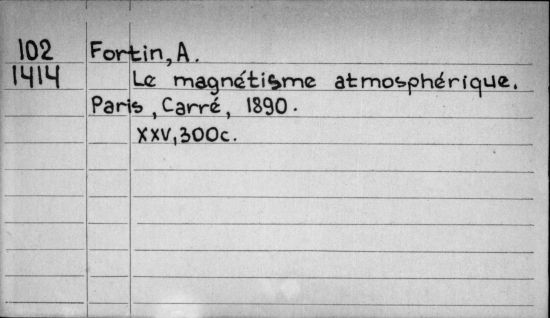 102 Fortin, A.
1414 Le magnétisme atmosphérique.
Paris, Carré, 1890.
XXV, 300c.